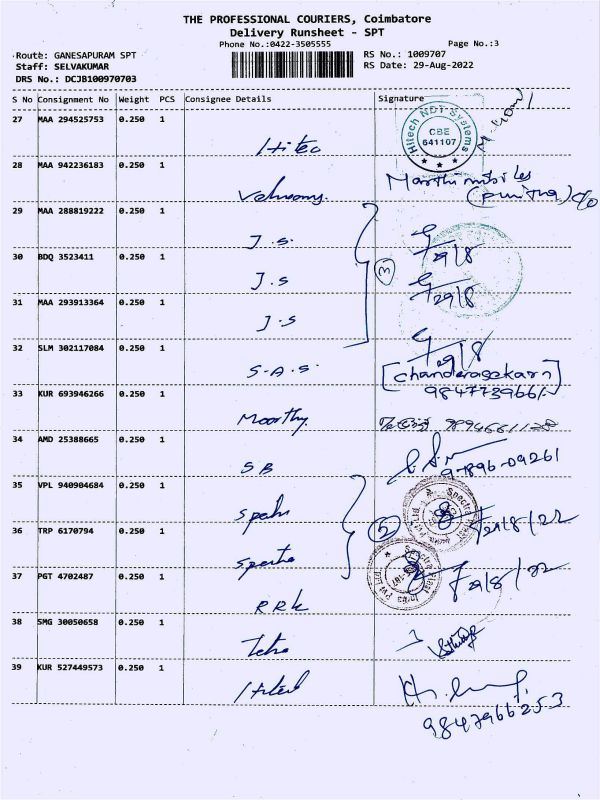 THE PROFESSIONAL COURIERS, Coimbatore
Delivery Runsheet - SPT
Phone No.:0422-3505555
Page No.:3
Route: GANESAPURAM SPT
RS No.: 1009707
Staff: SELVAKUMAR
RS Date: 29-Aug-2022
DRS No.: DCJB100970703
S No Consignment No Weight PCS Consignee Details Signature
27 MAA 294525753 0.250 1
Hitec
Hitech NDT Systems
CBE
641107
28 MAA 942236183 0.250 1
29 MAA 288819222 0.250 1
J.S.
29/8
30 BDQ 3523411 0.250 1
J.S
3
29/8
31 MAA 293913364 0.250 1
J.S
29/8
32 SLM 302117084 0.250 1
S.A.S.
[Chanderasekar]
33 KUR 693946266 0.250 1
Moorthy
9894661128
34 AMD 25388665 0.250 1
SB
91896-09261
35 VPL 940904684 0.250 1
29/8/22
36 TRP 6170794 0.250 1
29/8/22
37 PGT 4702487 0.250 1
RRK
38 SMG 30050658 0.250 1
Tetra
39 KUR 527449573 0.250 1
Hitech
9847966253